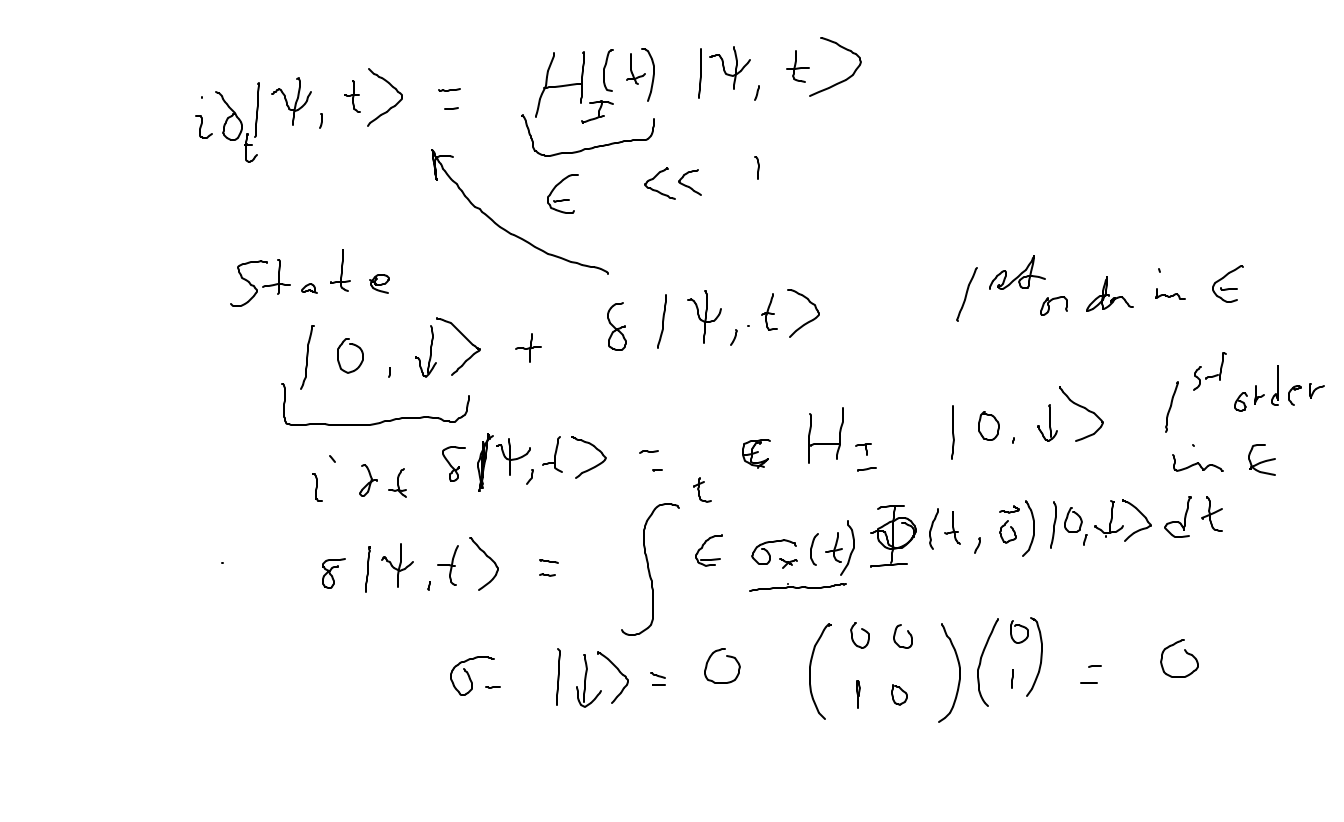 i∂ₜ|Ψ, t⟩ = H_I(t) |Ψ, t⟩
ϵ << 1
State
|0, ↓⟩ + δ|Ψ, t⟩ 1st order in ϵ
i∂t δ|Ψ, t⟩ = ϵ H_I |0, ↓⟩ 1st order in ϵ
δ|Ψ, t⟩ = ∫^t ϵ σₓ(t) Φ(t, 0⃗)|0, ↓⟩ dt
σ₋ |↓⟩ = 0 (0 0; 1 0)(0; 1) = 0